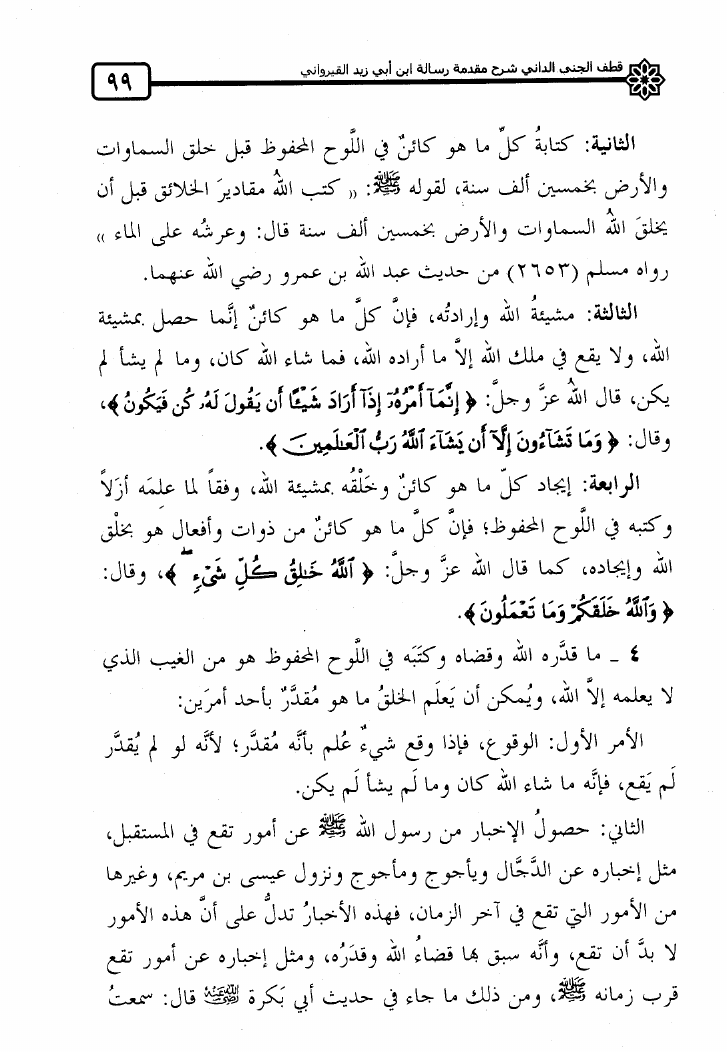 قطف الجنى الداني شرح مقدمة رسالة ابن أبي زيد القيرواني
٩٩
الثانية: كتابةُ كلِّ ما هو كائنٌ في اللَّوح المحفوظ قبل خلق السماوات
والأرض بخمسين ألف سنة، لقوله ﷺ: « كتب اللهُ مقاديرَ الخلائق قبل أن
يخلقَ اللهُ السماوات والأرض بخمسين ألف سنة قال: وعرشُه على الماء »
رواه مسلم (٢٦٥٣) من حديث عبد الله بن عمرو رضي الله عنهما.
الثالثة: مشيئةُ الله وإرادتُه، فإنَّ كلَّ ما هو كائنٌ إنَّما حصل بمشيئة
الله، ولا يقع في ملك الله إلاَّ ما أراده الله، فما شاء الله كان، وما لم يشأ لم
يكن، قال اللهُ عزَّ وجلَّ: ﴿ إِنَّمَآ أَمْرُهُۥٓ إِذَآ أَرَادَ شَيْـًٔا أَن يَقُولَ لَهُۥ كُن فَيَكُونُ ﴾،
وقال: ﴿ وَمَا تَشَآءُونَ إِلَّآ أَن يَشَآءَ ٱللَّهُ رَبُّ ٱلْعَـٰلَمِينَ ﴾.
الرابعة: إيجاد كلّ ما هو كائنٌ وخَلْقُه بمشيئة الله، وفقاً لما علِمَه أزَلاً
وكتبه في اللَّوح المحفوظ؛ فإنَّ كلَّ ما هو كائنٌ من ذوات وأفعال هو بخلْق
الله وإيجاده، كما قال الله عزَّ وجلَّ: ﴿ ٱللَّهُ خَـٰلِقُ كُلِّ شَىْءٍۢ ۖ ﴾، وقال:
﴿ وَٱللَّهُ خَلَقَكُمْ وَمَا تَعْمَلُونَ ﴾.
٤ ـ ما قدَّره الله وقضاه وكتَبَه في اللَّوح المحفوظ هو من الغيب الذي
لا يعلمه إلاَّ الله، ويُمكن أن يَعلَم الخلقُ ما هو مُقدَّرٌ بأحد أمرَين:
الأمر الأول: الوقوع، فإذا وقع شيءٌ عُلم بأنَّه مُقدَّر؛ لأنَّه لو لم يُقدَّر
لَم يَقع، فإنَّه ما شاء الله كان وما لَم يشأ لَم يكن.
الثاني: حصولُ الإخبار من رسول الله ﷺ عن أمور تقع في المستقبل،
مثل إخباره عن الدَّجَّال ويأجوج ومأجوج ونزول عيسى بن مريم، وغيرها
من الأمور التي تقع في آخر الزمان، فهذه الأخبارُ تدلُّ على أنَّ هذه الأمور
لا بدَّ أن تقع، وأنَّه سبق بها قضاءُ الله وقدَرُه، ومثل إخباره عن أمور تقع
قرب زمانه ﷺ، ومن ذلك ما جاء في حديث أبي بَكرة رضي الله عنه قال: سمعتُ